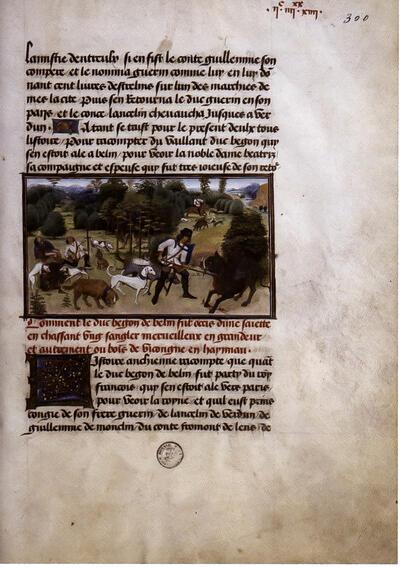 ii.c iiii.xx xiii.
300
lamistie dentreulx si en fist le conte guillemme son
compere et le nomma guerin comme luy en luy do
nant cent liures destrelins sur lun des marchies de
mes la cite Puis sen retourna le duc guerin en son
pays et le conte lancelin cheuaucha jusques a ver
dun. Atant se taist pour le present deulx tous
listoire Pour racompter du vaillant duc begon quy
sen estoit ale a belin pour veoir la noble dame beatrix
sa compaigne et espeuse quy fut tres joieuse de son
Comment le duc begon de belin fut occis dune saiette
en chassant vng sangler merueilleux en grandeur
et autrement ou bois de vicongne en haynau.
Istoire anchienne racompte que quant
le duc begon de belin fut party du roy
francois quy sen estoit ale vers paris
pour veoir la royne et quil eust prins
congie de son frere guerin de lancelin de verdun de
guillemme de monclin du conte fromont de lens de